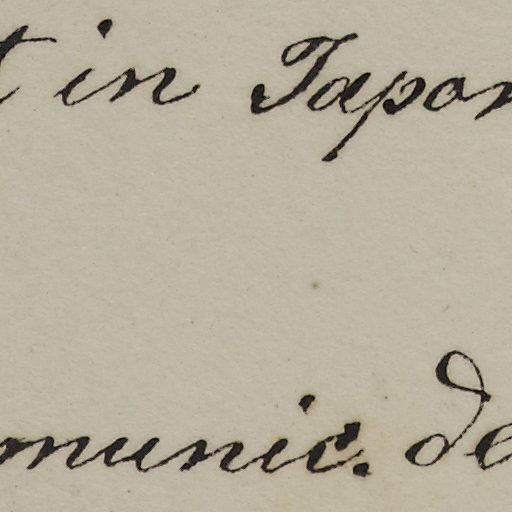 t in Japon
munic. de